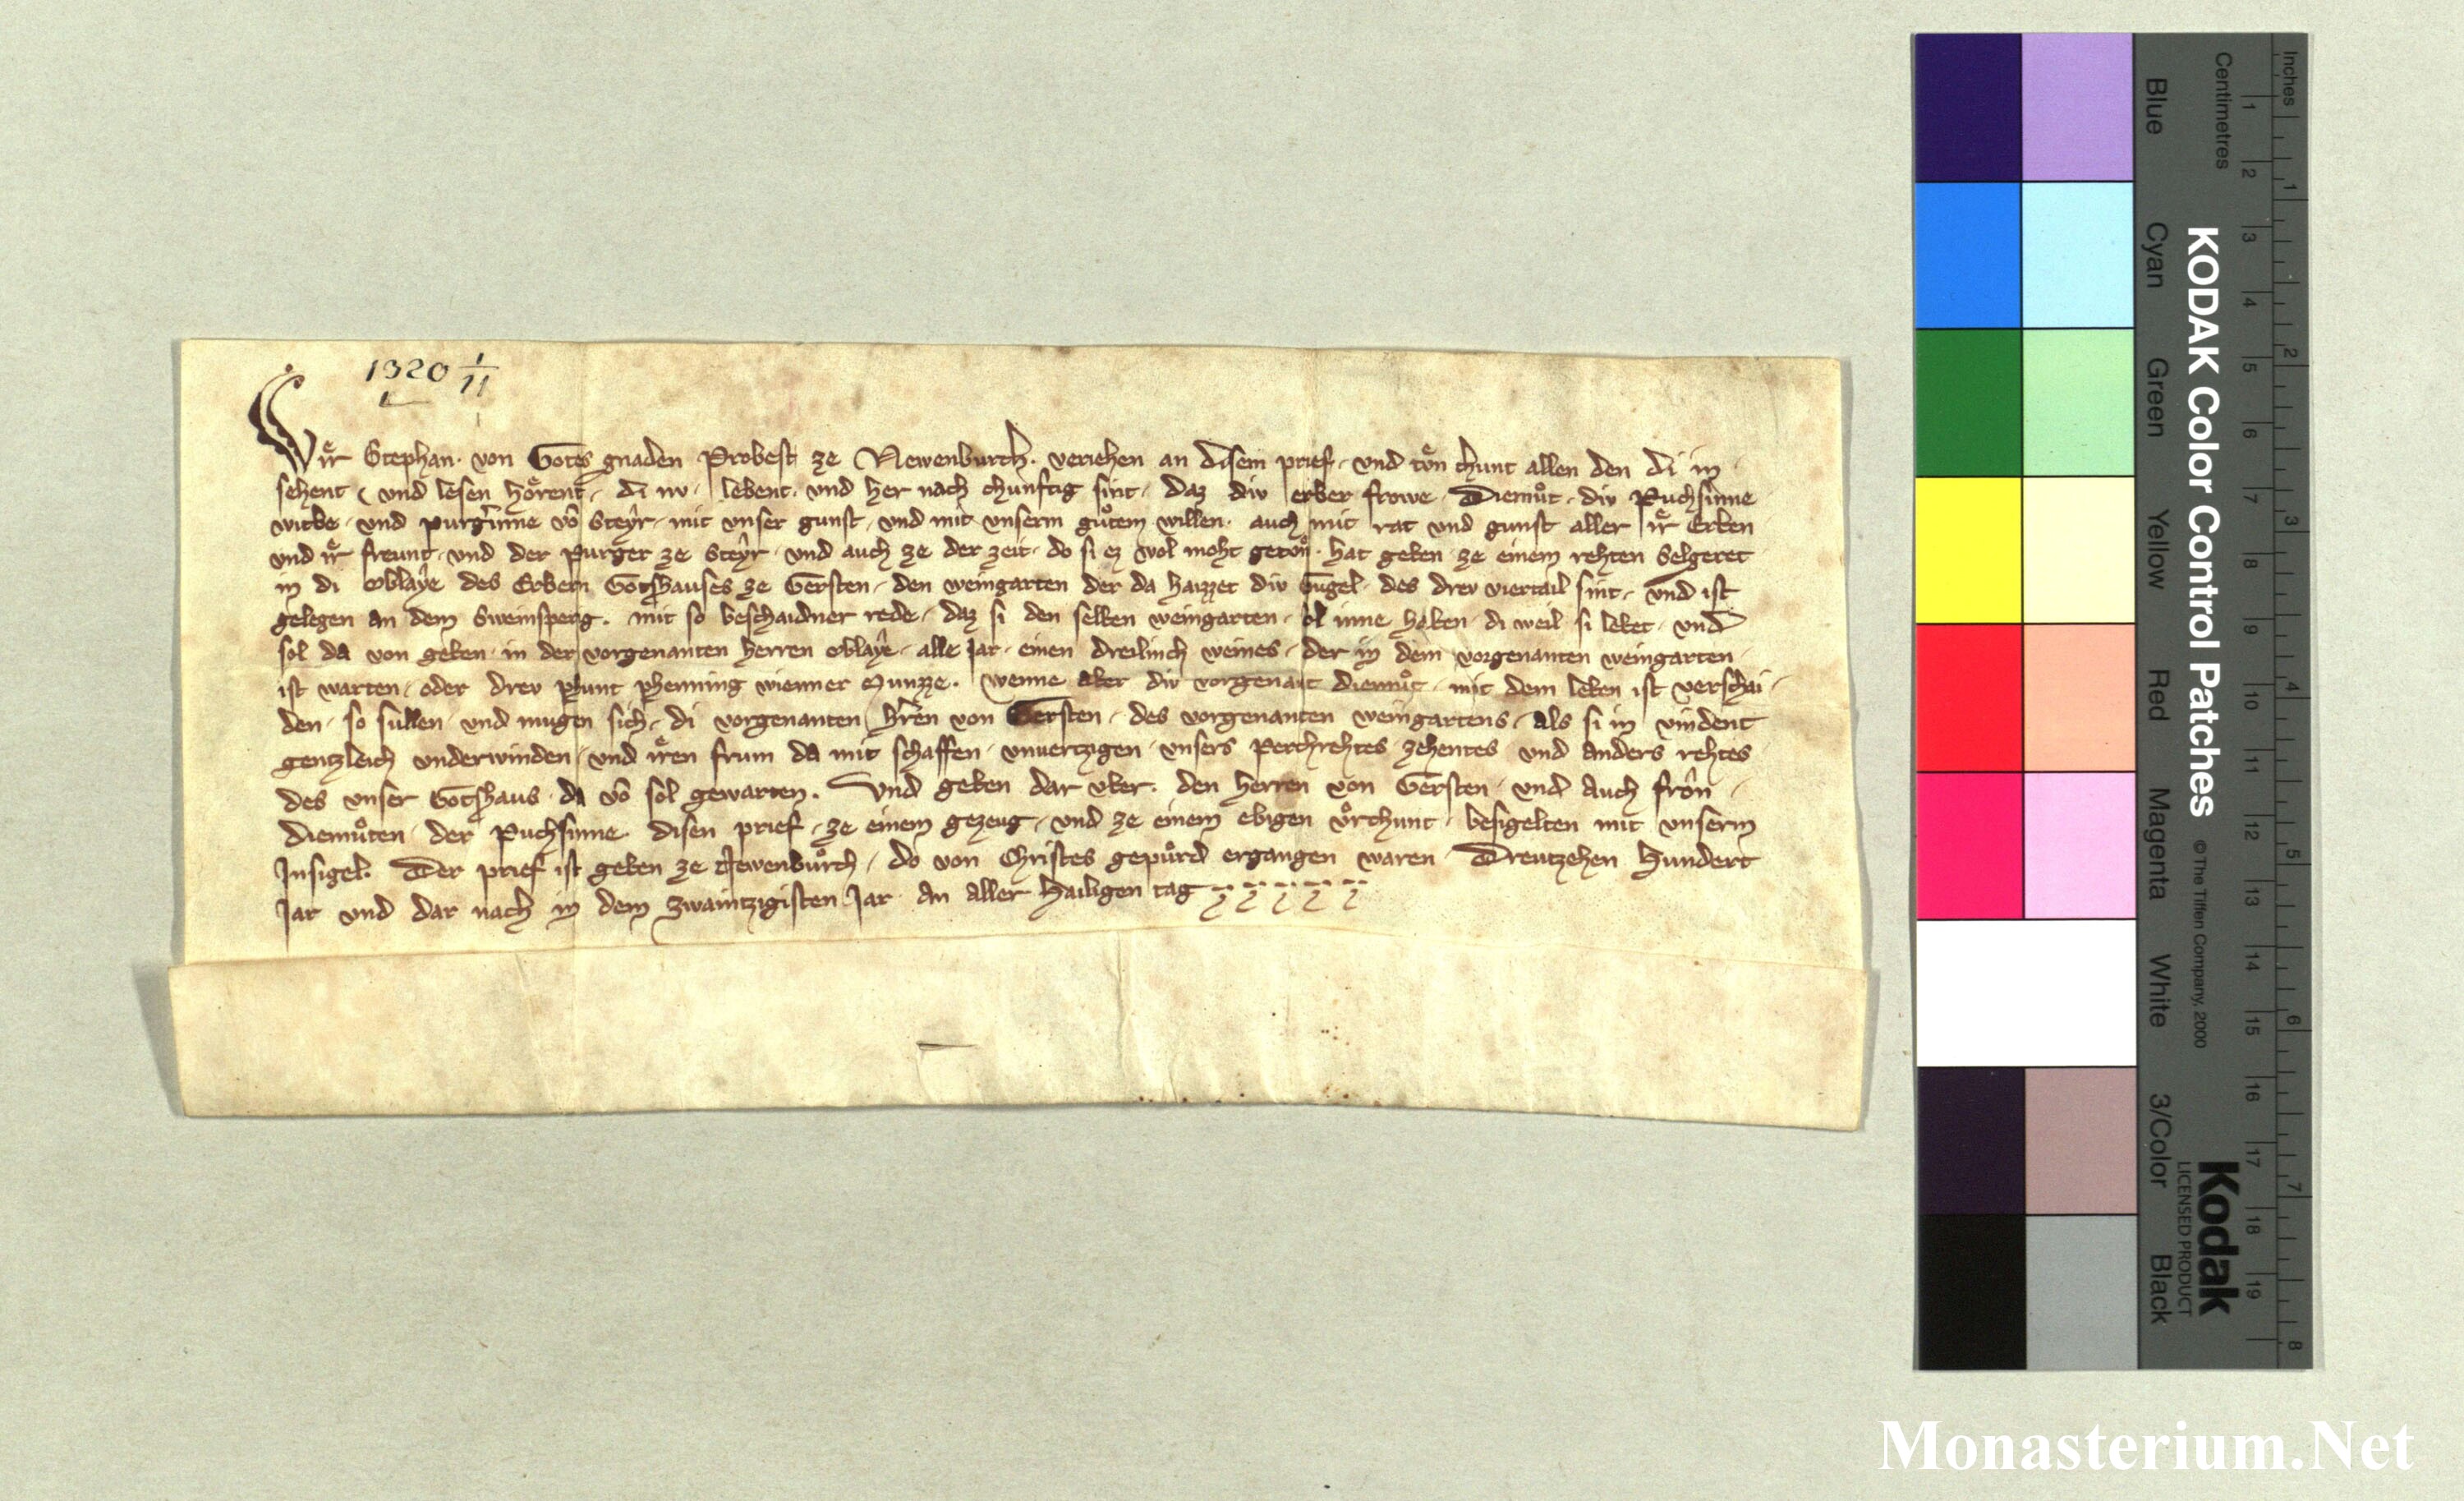 1320 1/11
Wiͤr Stephan · von Gotes gnaden Probest ze Newenburch · veriehen an disem prief · vnd toͤn chunt allen den di in ·
sehent · vnd lesen hoͤrent · di nv · lebent · vnd her nach chunftig sint · daz div erber frowe · Diemuͦt · div Puchsinne
witbe · vnd purgrinne vō Steyr · mit vnser gunst · vnd mit vnserm guͦtem willen · auch mit rat vnd gunst aller iͤr Erben
vnd iͤr freunt · vnd der Purger ze Steyr · vnd auch ze der zeit · do si ez wol moht getoͤn · hat geben ze einem rehten Selgeret
in di oblaye des Erbern Gotshauses ze Gersten · den weingarten der da haizzet div Gugel · des drev viertail sint · vnd ist
gelegen an dem Sweinsperg · mit so beschaidner rede · daz si den selben weingarten · sol inne haben · di weil si lebet · vnd
sol da von geben · in der vorgenanten herren oblaye · alle Jar · einen dreilinch weines · der in dem vorgenanten weingarten ·
ist warten · oder drev phunt phenning wienner Munzze · wenne aber div vorgenant diemuͦt · mit dem leben ist verschai ·
den · so sullen · vnd mugen sich · di vorgenanten h̄ren von Gersten · des vorgenanten weingartens · als si in vindent
gentzleich vnderwinden · vnd iͤren frum da mit schaffen · vnuertzigen · vnsers perchrehtes · zehentes · vnd anders rehtes
des vnser Gotshaus · da vō sol gewarten · Vnd geben dar vber · den herren von Gersten · vnd auch frôn ·
diemuͦten · der Puchsinne · disen prief · ze einem gezeug · vnd ze einem ebigen vͦrchunt · besigelten mit vnserm
Insigel · Der prief ist geben ze Newenbuͦrch · do von Christes gepuͦrd ergangen waren · Dreutzehen Hundert
Jar vnd dar nach in dem zwaintzigisten Jar · An aller Hailigen tag
KODAK Color Control Patches
© The Tiffen Company, 2000
Kodak
LICENSED PRODUCT
Inches
Centimetres
1 2 3 4 5 6 7 8
1 2 3 4 5 6 7 8 9 10 11 12 13 14 15 16 17 18 19
Blue
Cyan
Green
Yellow
Red
Magenta
White
3/Color
Black
Monasterium.Net